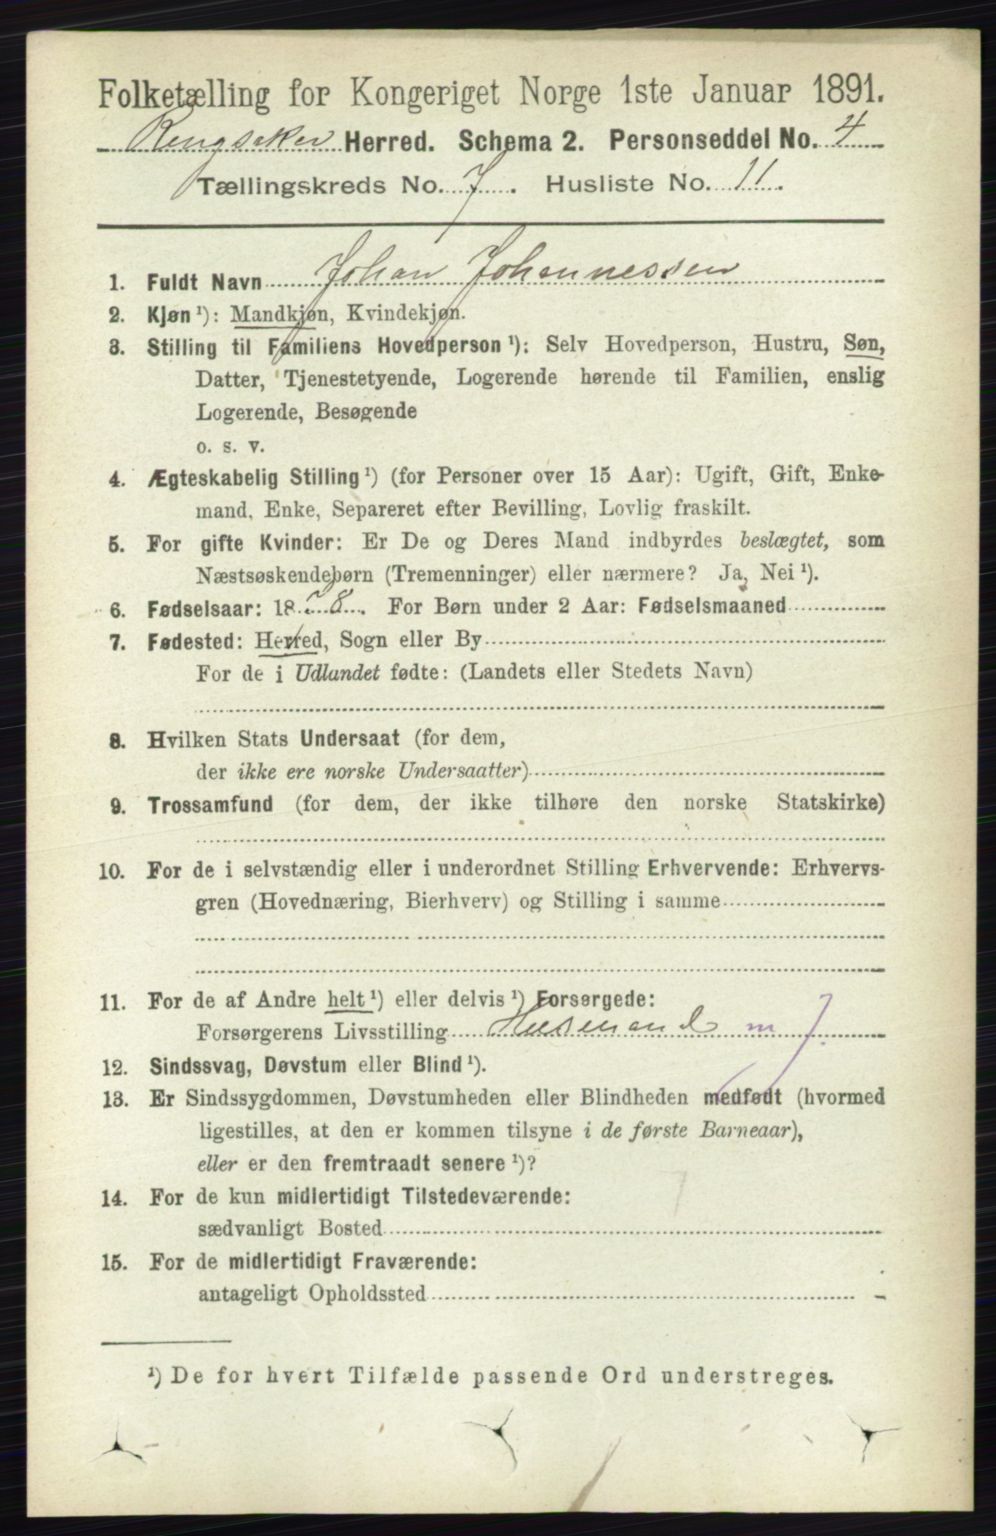 Folketælling for Kongeriget Norge 1ste Januar 1891.
Ringsaker Herred. Schema 2. Personseddel No. 4
Tællingskreds No. 7. Husliste No. 11.
1. Fuldt Navn Johan Johannessen
2. Kjøn ¹): Mandkjøn, Kvindekjøn.
3. Stilling til Familiens Hovedperson ¹): Selv Hovedperson, Hustru, Søn,
Datter, Tjenestetyende, Logerende hørende til Familien, enslig
Logerende, Besøgende
o. s. v.
4. Ægteskabelig Stilling ¹) (for Personer over 15 Aar): Ugift, Gift, Enke-
mand, Enke, Separeret efter Bevilling, Lovlig fraskilt.
5. For gifte Kvinder: Er De og Deres Mand indbyrdes beslægtet, som
Næstsøskendebørn (Tremenninger) eller nærmere? Ja, Nei ¹).
6. Fødselsaar: 1878. For Børn under 2 Aar: Fødselsmaaned
7. Fødested: Herred, Sogn eller By
For de i Udlandet fødte: (Landets eller Stedets Navn)
8. Hvilken Stats Undersaat (for dem,
der ikke ere norske Undersaatter)
9. Trossamfund (for dem, der ikke tilhøre den norske Statskirke)
10. For de i selvstændig eller i underordnet Stilling Erhvervende: Erhvervs-
gren (Hovednæring, Bierhverv) og Stilling i samme
11. For de af Andre helt ¹) eller delvis ¹) Forsørgede:
Forsørgerens Livsstilling Husmand m J.
12. Sindssvag, Døvstum eller Blind ¹).
13. Er Sindssygdommen, Døvstumheden eller Blindheden medfødt (hvormed
ligestilles, at den er kommen tilsyne i de første Barneaar),
eller er den fremtraadt senere ¹)?
14. For de kun midlertidigt Tilstedeværende:
sædvanligt Bosted
15. For de midlertidigt Fraværende:
antageligt Opholdssted
¹) De for hvert Tilfælde passende Ord understreges.